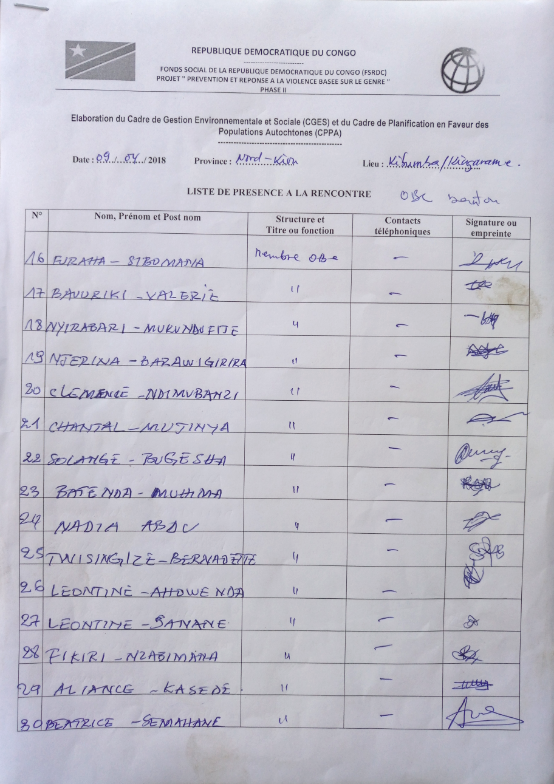 REPUBLIQUE DEMOCRATIQUE DU CONGO
FONDS SOCIAL DE LA REPUBLIQUE DEMOCRATIQUE DU CONGO (FSRDC)
PROJET " PREVENTION ET REPONSE A LA VIOLENCE BASEE SUR LE GENRE "
PHASE II
Elaboration du Cadre de Gestion Environnementale et Sociale (CGES) et du Cadre de Planification en Faveur des
Populations Autochtones (CPPA)
Date : 09 / 04 / 2018 Province : Nord-Kivu Lieu : Kibumba/
LISTE DE PRESENCE A LA RENCONTRE OBC
N° Nom, Prénom et Post nom Structure et Titre ou fonction Contacts téléphoniques Signature ou empreinte
16 FURAHA - SIBOMANA Membre OBC —
17 BAVURIKI - VALERIE " —
18 NYIRABARI - MUKUNDUFITE " —
19 NTERINA - BARAWIGIRIRA " —
20 CLEMENCE - NDIMUBANZI " —
21 CHANTAL - MUJINYA " —
22 SOLANGE - BUGESHA " —
23 BATENDA - MUHIMA " —
24 NADIA ABDU " —
25 TWISINGIZE - BERNADETTE " —
26 LEONTINE - AHOWENDA " —
27 LEONTINE - SANANE " —
28 FIKIRI - NZABIMANA " —
29 ALIANCE - KASEDE " —
30 BEATRICE - SEMAHANE " —